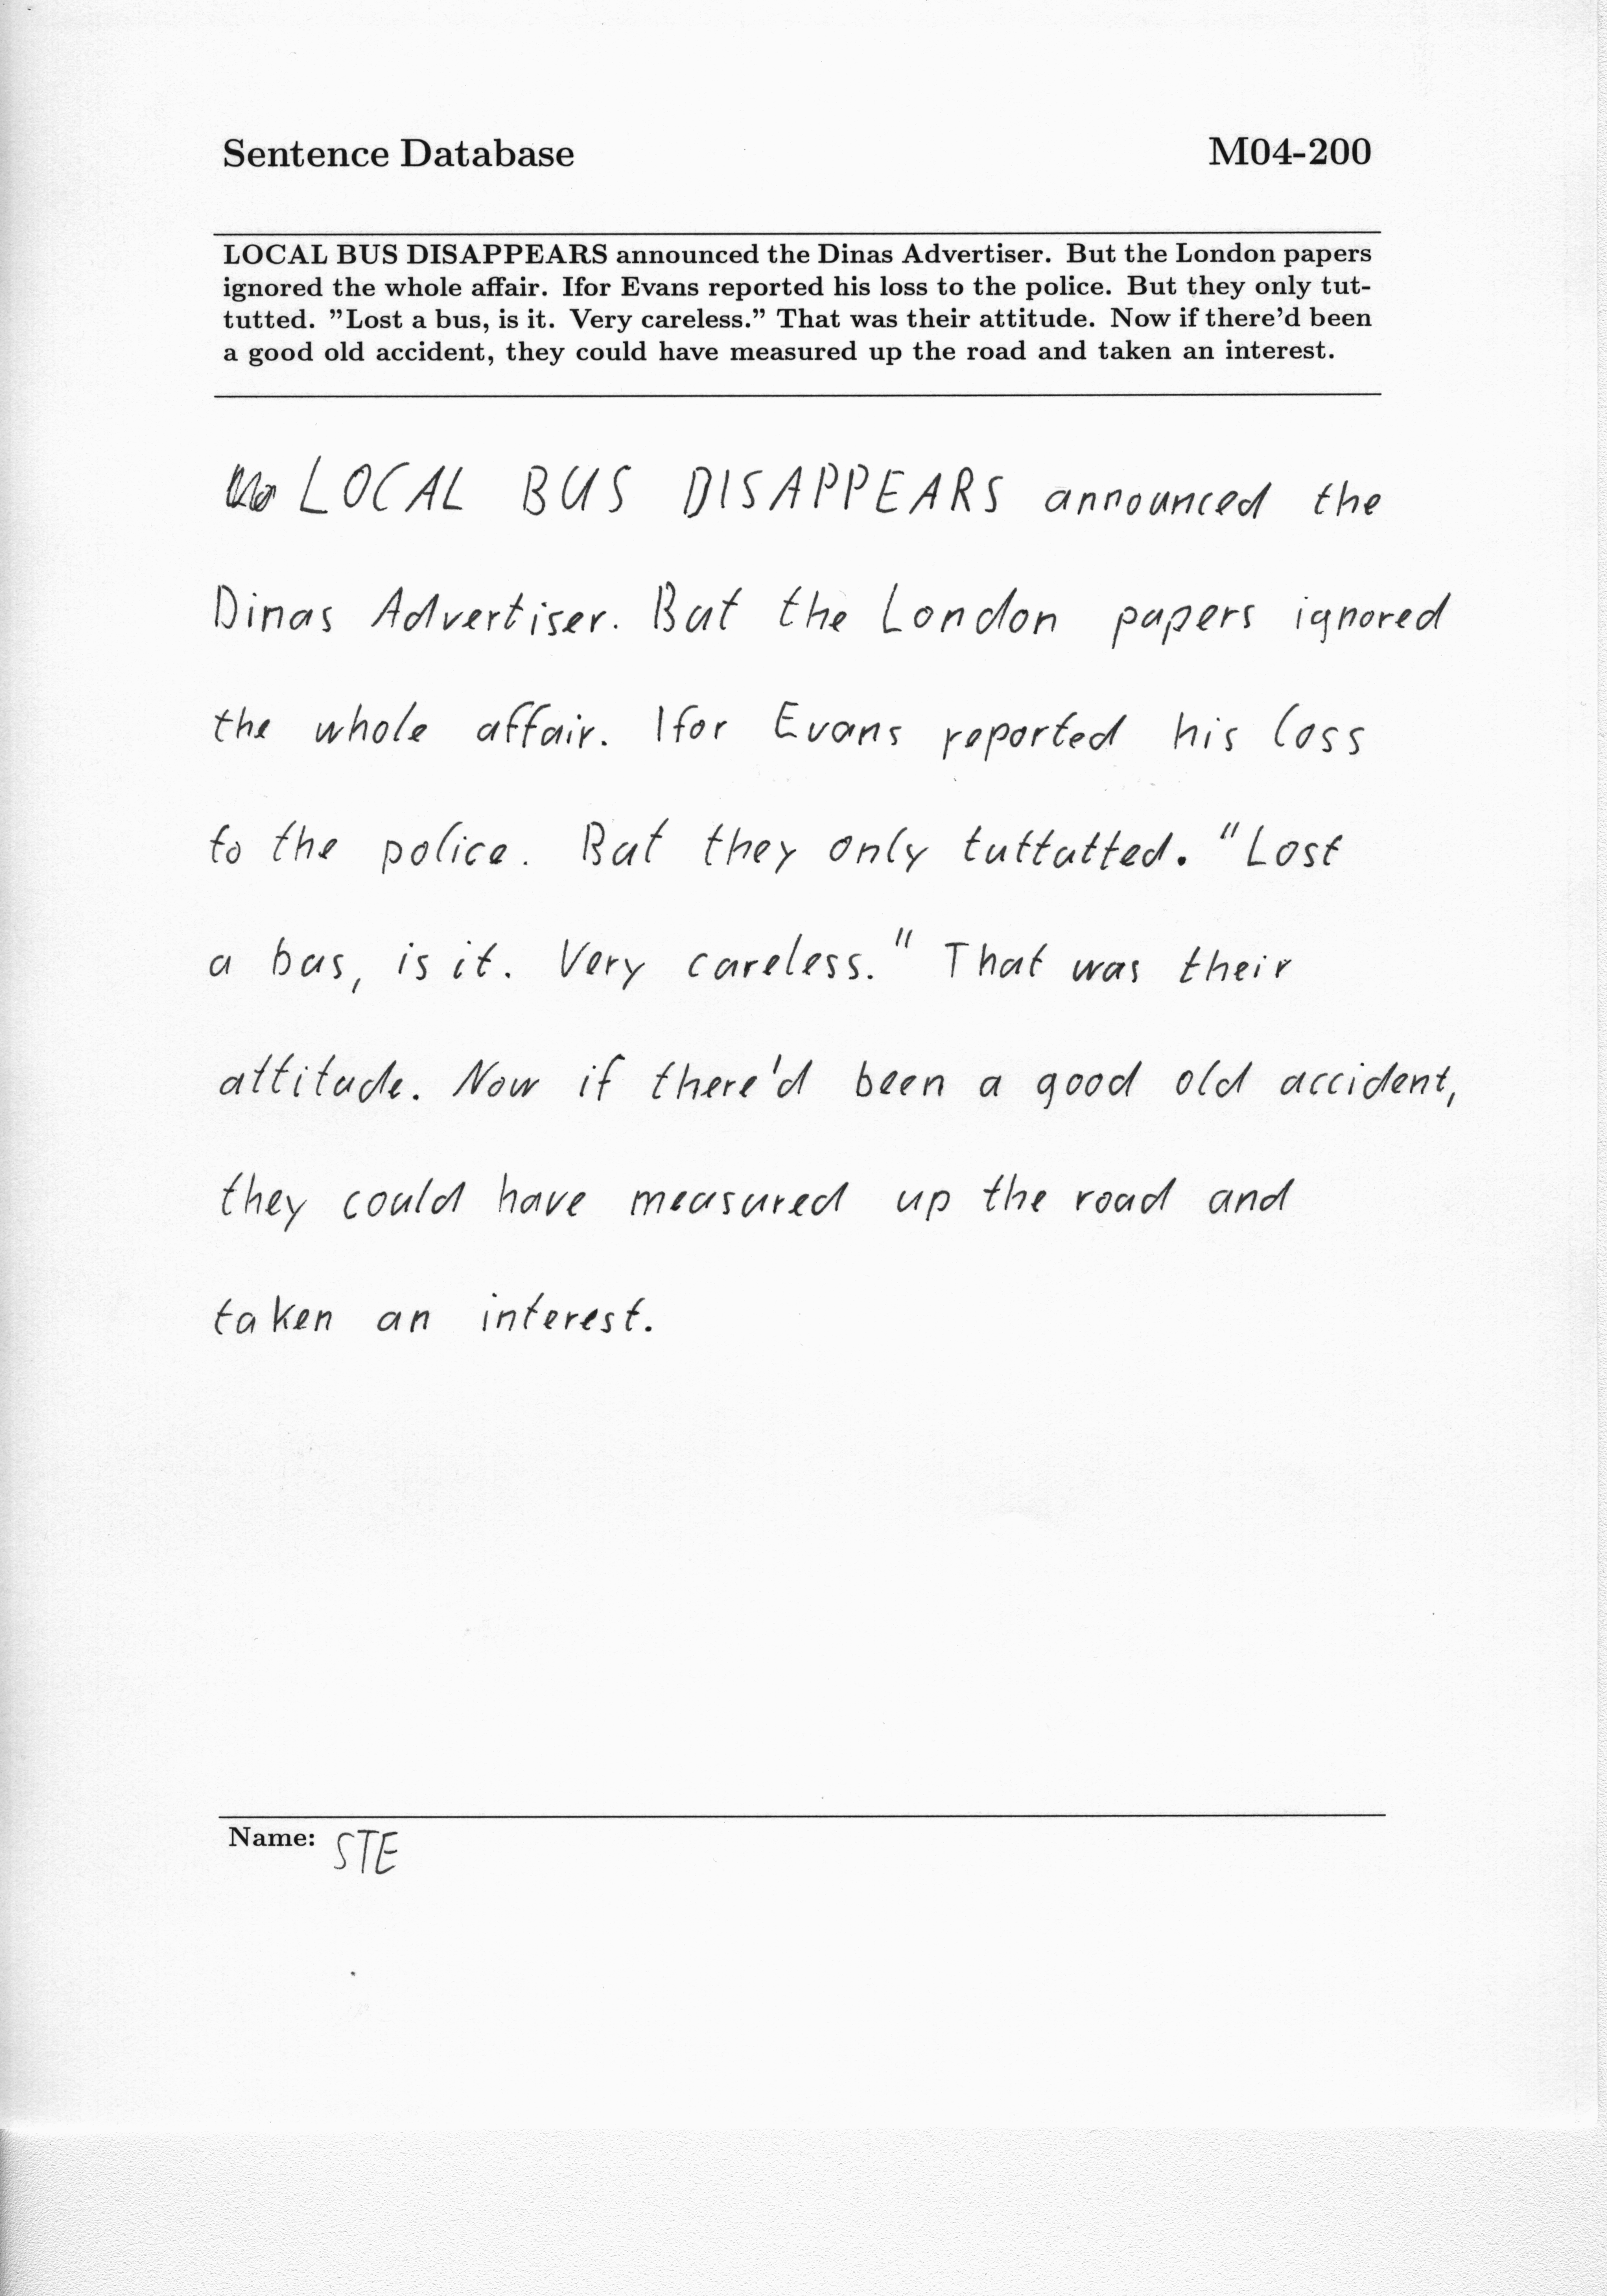 Sentence Database M04-200
LOCAL BUS DISAPPEARS announced the Dinas Advertiser. But the London papers
ignored the whole affair. Ifor Evans reported his loss to the police. But they only tut-
tutted. ”Lost a bus, is it. Very careless.” That was their attitude. Now if there’d been
a good old accident, they could have measured up the road and taken an interest.
LOCAL BUS DISAPPEARS announced the
Dinas Advertiser. But the London papers ignored
the whole affair. Ifor Evans reported his loss
to the police. But they only tuttutted. "Lost
a bus, is it. Very careless." That was their
attitude. Now if there'd been a good old accident,
they could have measured up the road and
taken an interest.
Name: STE